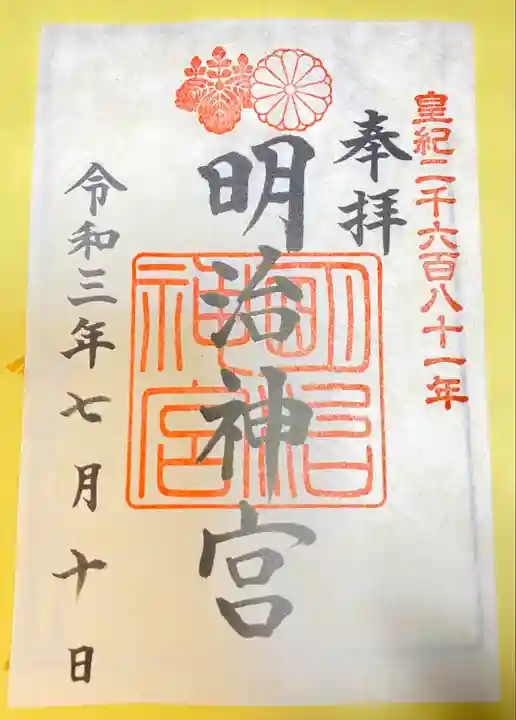 皇紀二千六百八十一年
奉拝
明治神宮
明治神宮
令和三年七月十日